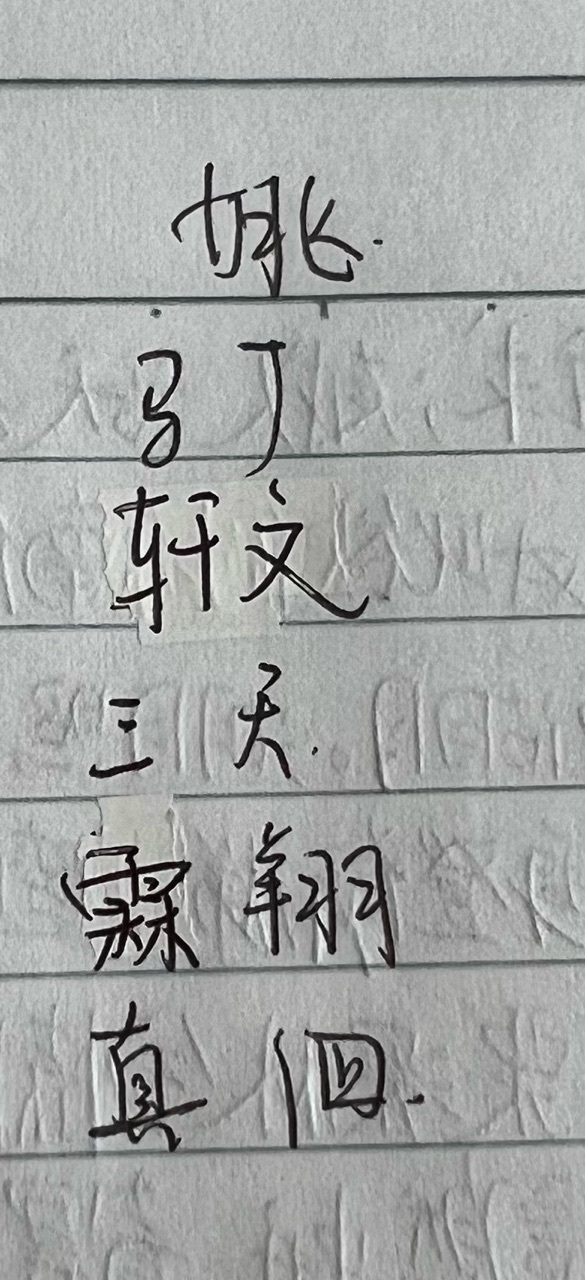 姚
马丁
轩文
三天
霖翔
真